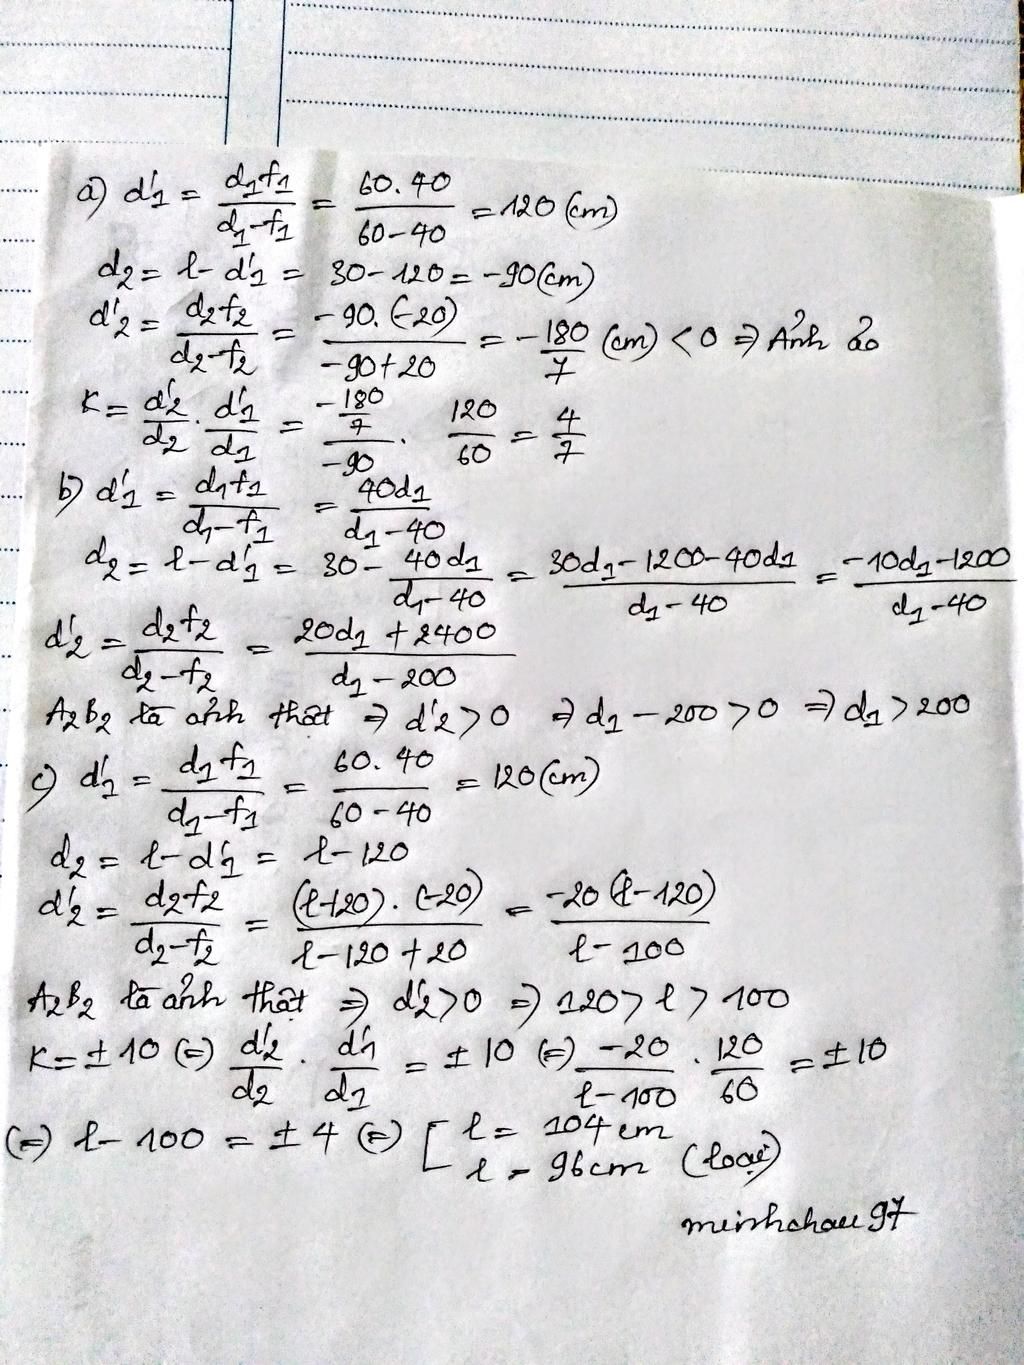 a) d'1 = d1f1/(d1-f1) = 60.40/(60-40) = 120 (cm)
d2 = l - d'1 = 30 - 120 = -90 (cm)
d'2 = d2f2/(d2-f2) = -90.(-20)/(-90+20) = -180/7 (cm) < 0 ⇒ Ảnh ảo
K = d'2/d2 . d'1/d1 = (-180/7)/(-90) . 120/60 = 4/7
b) d'1 = d1f1/(d1-f1) = 40d1/(d1-40)
d2 = l - d'1 = 30 - 40d1/(d1-40) = (30d1-1200-40d1)/(d1-40) = (-10d1-1200)/(d1-40)
d'2 = d2f2/(d2-f2) = (20d1+2400)/(d1-200)
A2B2 là ảnh thật ⇒ d'2 > 0 ⇒ d1 - 200 > 0 ⇒ d1 > 200
c) d'1 = d1f1/(d1-f1) = 60.40/(60-40) = 120 (cm)
d2 = l - d'1 = l - 120
d'2 = d2f2/(d2-f2) = (l-120).(-20)/(l-120+20) = -20(l-120)/(l-100)
A2B2 là ảnh thật ⇒ d'2 > 0 ⇒ 120 > l > 100
K = ±10 (=) d'2/d2 . d'1/d1 = ±10 (=) -20/(l-100) . 120/60 = ±10
(=) l - 100 = ±4 (=) [ l = 104 cm
l = 96cm (loại)
minhchau97